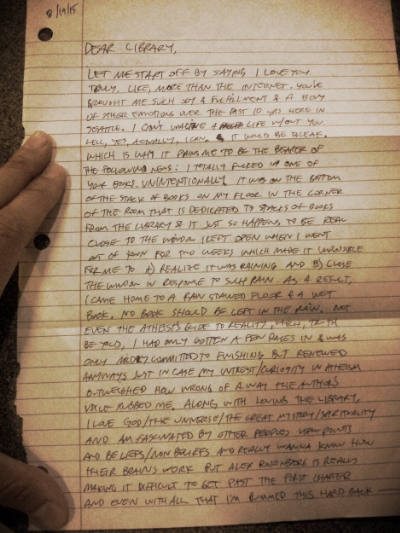 8/19/15
DEAR LIBRARY,
LET ME START OFF BY SAYING I LOVE YOU
TRULY. LIKE, MORE THAN THE INTERNET. YOU'VE
BROUGHT ME SUCH JOY & FULFILLMENT & A BEVY
OF OTHER EMOTIONS OVER THE PAST 10 YRS HERE IN
SEATTLE. I CAN'T IMAGINE A LIFE W/OUT YOU
WELL, YES, ACTUALLY, I CAN. & IT WOULD BE BLEAK.
WHICH IS WHY IT PAINS ME TO BE THE BEARER OF
THE FOLLOWING NEWS: I TOTALLY FUCKED UP ONE OF
YOUR BOOKS. UNINTENTIONALLY. IT WAS ON THE BOTTOM
OF THE STACK OF BOOKS ON MY FLOOR IN THE CORNER
OF THE ROOM THAT IS DEDICATED TO STACKS OF BOOKS
FROM THE LIBRARY & IT JUST SO HAPPENS TO BE REAL
CLOSE TO THE WINDOW I LEFT OPEN WHEN I WENT
OUT OF TOWN FOR TWO WEEKS WHICH MADE IT UNWINNABLE
FOR ME TO A) REALIZE IT WAS RAINING AND B) CLOSE
THE WINDOW IN RESPONSE TO SUCH RAIN. AS A RESULT,
I CAME HOME TO A RAIN STAINED FLOOR & A WET
BOOK. NO BOOK SHOULD BE LEFT IN THE RAIN. NOT
EVEN THE ATHEIST'S GUIDE TO REALITY. TRUTH
BE TOLD, I HAD ONLY GOTTEN A FEW PAGES IN & WAS
ONLY COMMITTED TO FINISHING BUT RENEWED
ANYWAYS JUST IN CASE MY INTREST/CURIOSITY IN ATHEISM
OUTWEIGHED HOW WRONG OF A WAY THE AUTHORS
VOICE RUBBED ME. ALONG WITH LOVING THE LIBRARY,
I LOVE GOD/THE UNIVERSE/THE GREAT MYSTERY/SPIRITUALITY
AND AM FASCINATED BY OTHER PEOPLES VIEW POINTS
AND BELIEFS/NON BELIEFS AND REALLY WANNA KNOW HOW
THEIR BRAINS WORK BUT ALEX ROSENBERG IS REALLY
MAKING IT DIFFICULT TO GET PAST THE FIRST CHAPTER
AND EVEN WITH ALL THAT I'M BUMMED THIS HARD BACK